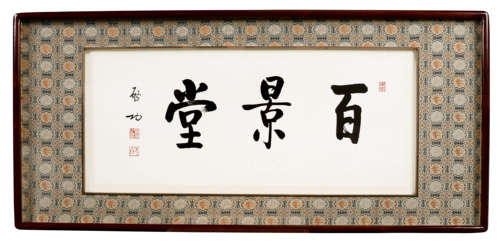 百景堂
启功